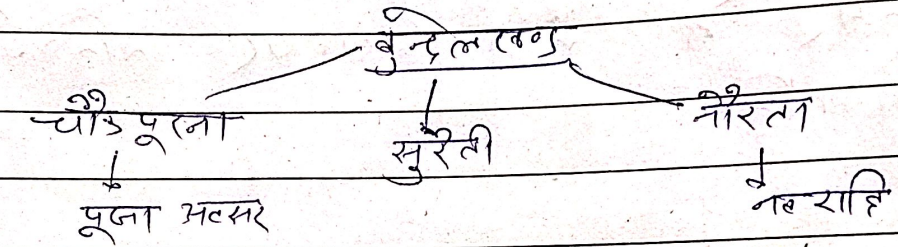 बुन्देलखण्ड
चौक पूरना सुरैती नौरता
पूजा अवसर नवरात्रि